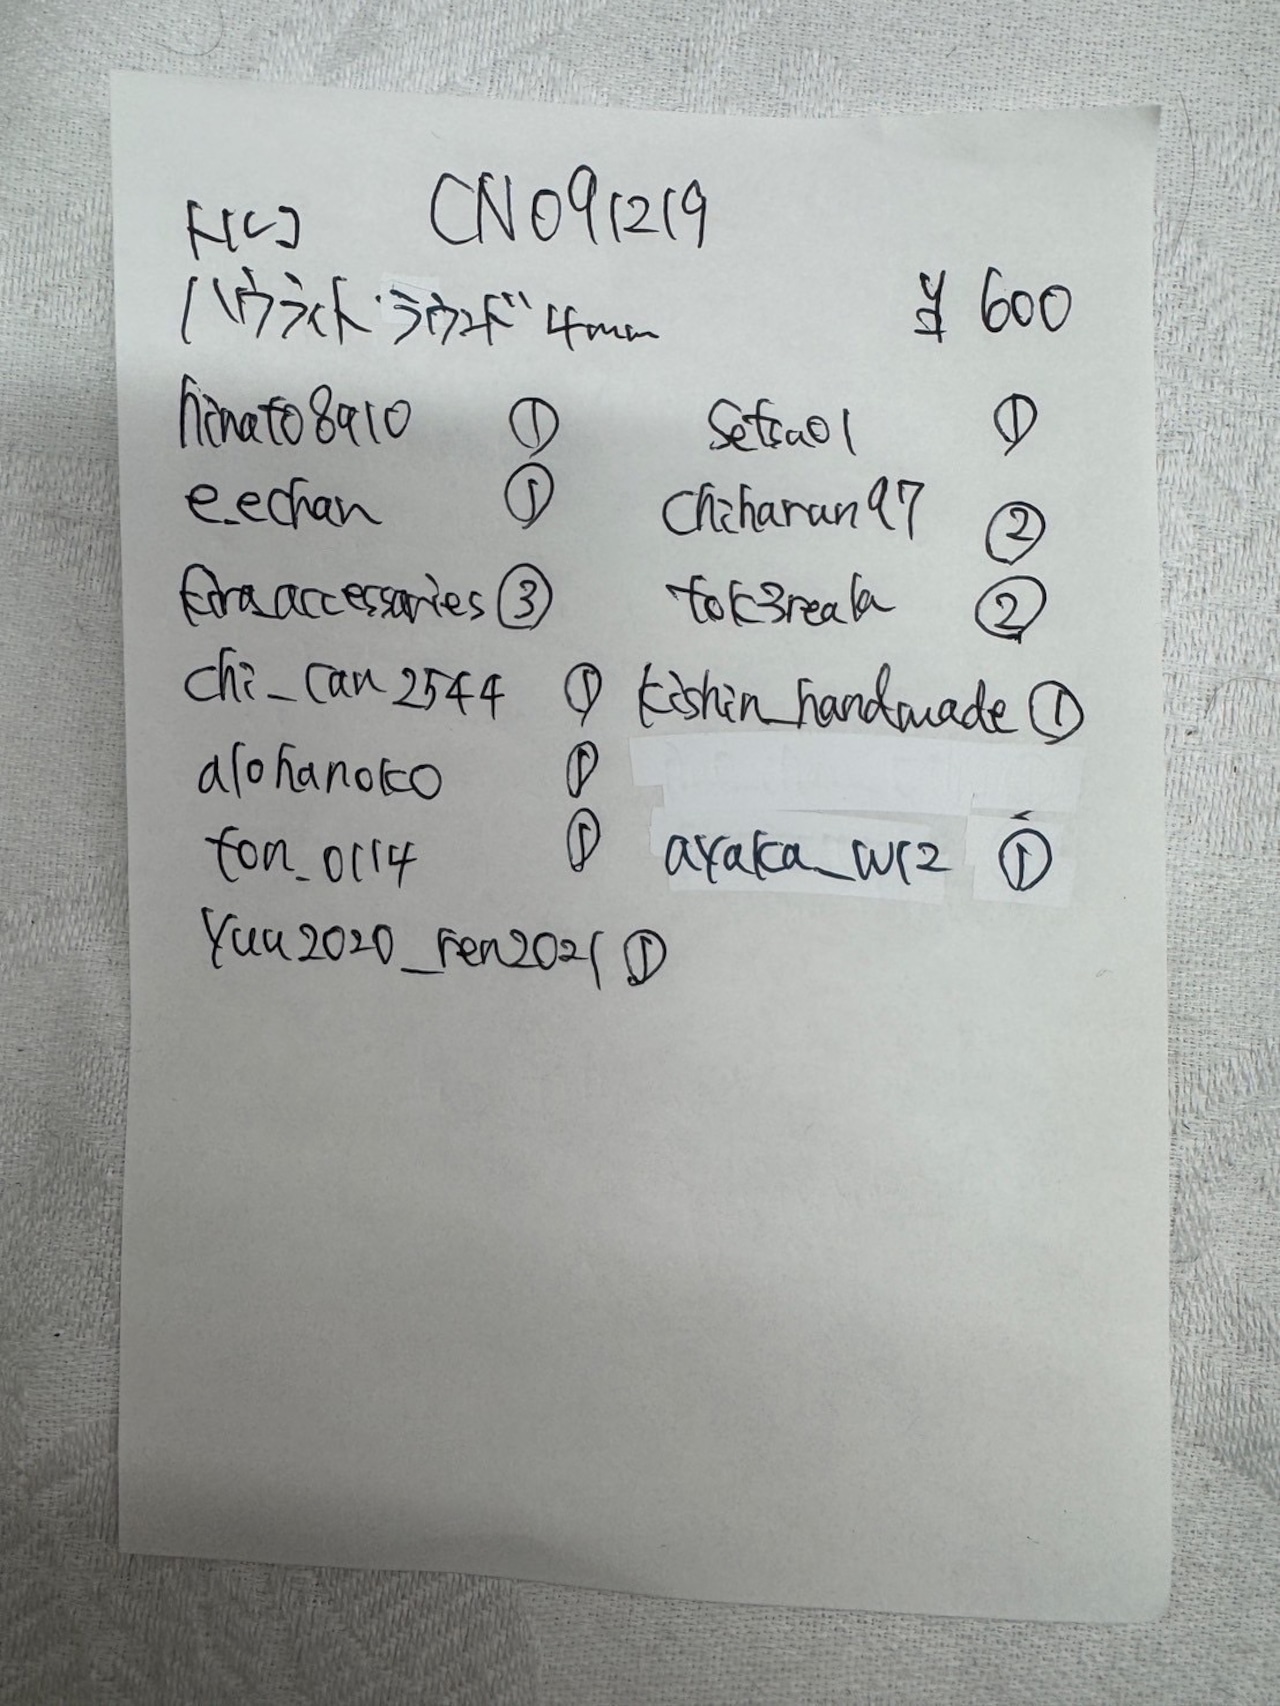 CN091219
ハウライト・ラウンド 4mm ¥600
hinato8910 ① setsu01 ①
e.echan ① chiharun97 ②
accessories ③ tok3reala ②
chi_can2544 ① kishin_handmade ①
alohanoko ①
ton_0114 ① ayaka_wr2 ①
yuu2020_ren2021 ①